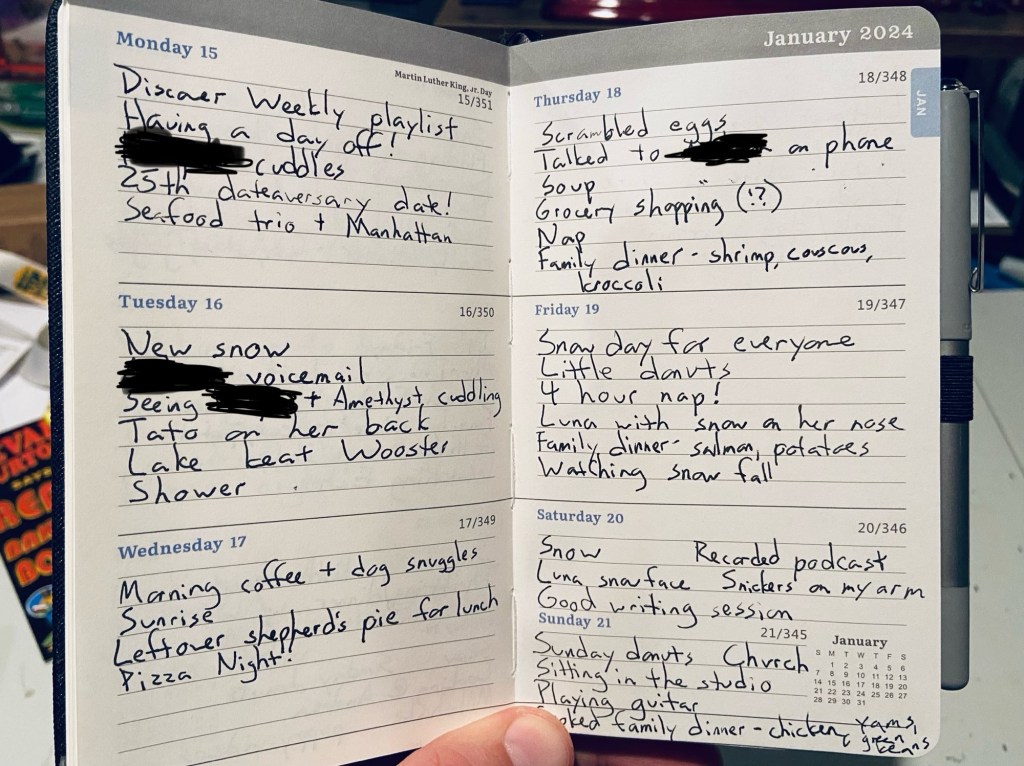 Monday 15
Martin Luther King, Jr. Day
15/351
Discover Weekly playlist
Having a day off!
cuddles
25th dateaversary date!
Seafood trio + Manhattan
Tuesday 16
16/350
New snow
voicemail
Seeing + Amethyst cuddling
Tato on her back
Lake beat Wooster
Shower
Wednesday 17
17/349
Morning coffee + dog snuggles
Sunrise
Leftover shepherd's pie for lunch
Pizza Night!
January 2024
JAN
Thursday 18
18/348
Scrambled eggs
Talked to on phone
Soup
Grocery shopping (!?)
Nap
Family dinner - shrimp, couscous,
broccoli
Friday 19
19/347
Snow day for everyone
Little donuts
4 hour nap!
Luna with snow on her nose
Family dinner - salmon, potatoes
Watching snow fall
Saturday 20
20/346
Snow Recorded podcast
Luna snowface Snickers on my arm
Good writing session
Sunday 21
21/345
Sunday donuts Church
Sitting in the studio
Playing guitar
family dinner - chicken, yams,
green beans
January
S M T W T F S
1 2 3 4 5 6
7 8 9 10 11 12 13
14 15 16 17 18 19 20
21 22 23 24 25 26 27
28 29 30 31